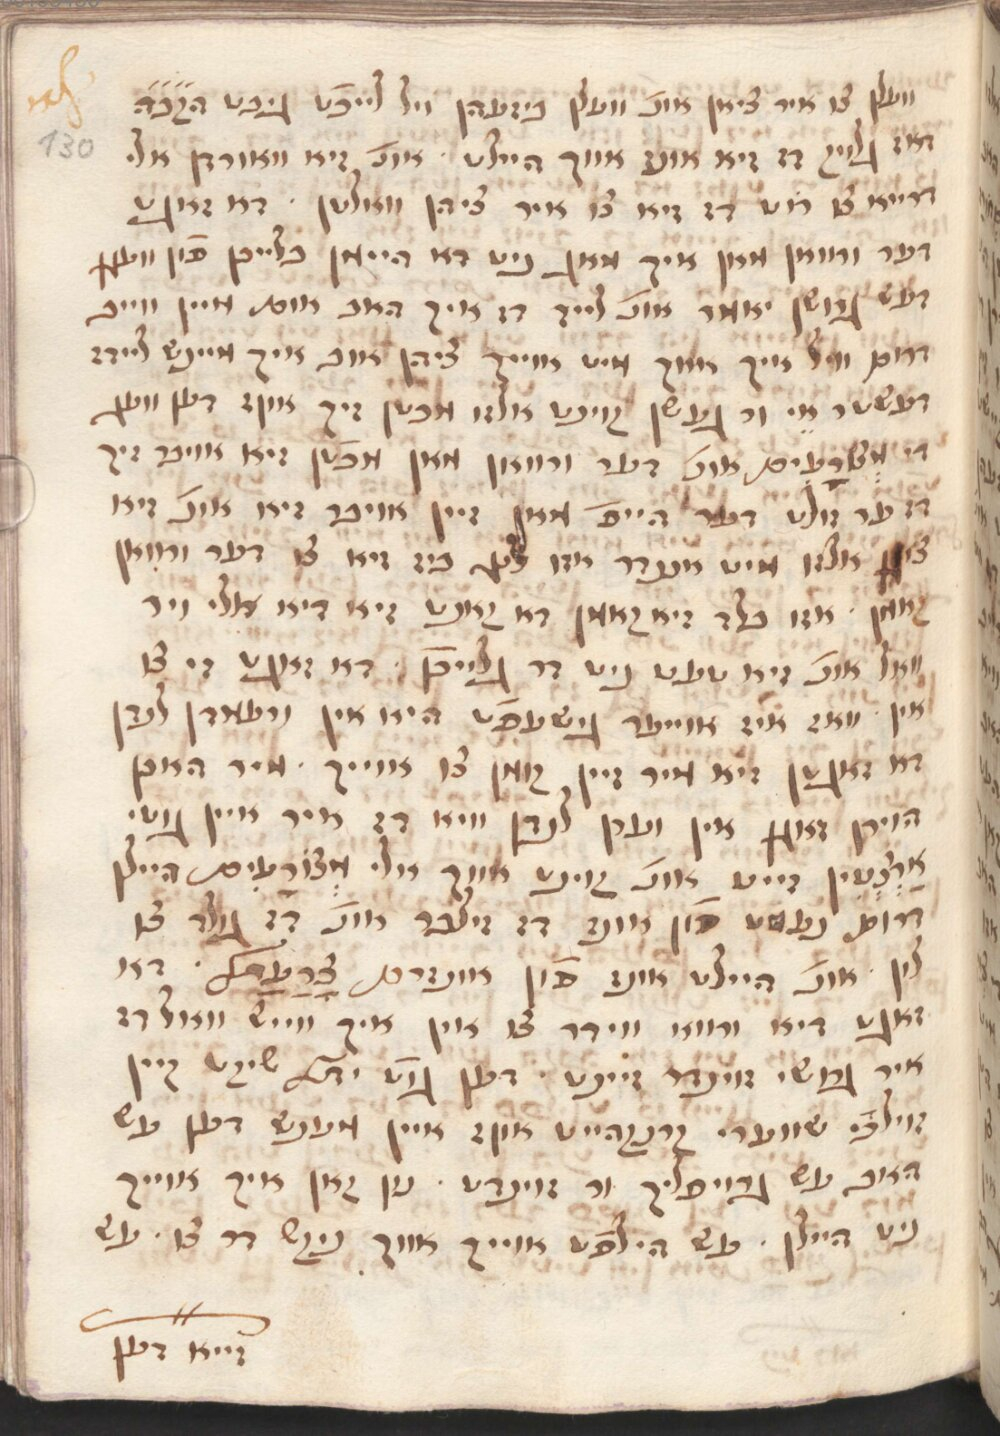 וועלן צו איר ציאן אונ' וועלן ביזעהן וויל לייכט גיבט הקב"ה
דאז גלויק דז זיא אונז אווך היילט · אונ' זיא ווארדן אלי
דרייא צו רוט דז זיא צו איר ציהן וואלטן · דא זאגט
דער ורוואן מאן איך מאג ניט דא היימן בלייבן פון וועגן
דעש גרושן יאמר אונ' לייד דז איך האב אום מיין ווייב
דרום וויל איך אווך מיט אווייך ציהן אוב איך מיינש ליידז
דעשטר אי ור געשן קוינט אלזו מכטן זיך אונז דען וועג
די מצורעים אונ' דער ורוואן מאן מכטן זיא אויבר זיך
דז ער זולט דער הייפט מאן זיין אויבר זיא אונ' זיא
ציהן אלזו מיט אנגדר אזו לנג ביז זיא צו דער ורוואן
קאמן · אזו בלד זיא קאמן דא קאנט זיא דיא אלי ויר
וואל אונ' זיא טעט ניט דר גלייכן · דא זאגט זי צו
אין · וואז איז אוייער גישעפט היא אין ורעמדן לנדן
דא זאגטן זיא מיר זיין קומן צו אווייך · מיר האבן
הוירן זאגן אין ועק לנדן וויא דז איר איין גוטי
ארצטין זייט אונ' קוינט אווך אלי מצורעים היילן
דרום נעמט פון אונז דז זילבר אונ' דז גולד צו
לון · אונ' היילט אונז פון אונזרם צרעת · דא
זאגט דיא ורווא ווידר צו אין איך ווייש וואול דז
איר גרושי זוינדר זייט · דען גוט ית' שיקט קיין
זוילכי שווערי קרנקהייט אונז איין מענש דען עש
האב עש גרויסליך ור זוינדט · נון קאן איך אווייך
ניט היילן · עש הילפט אווייך אווך ניקש דר צו · עש
זייא דען